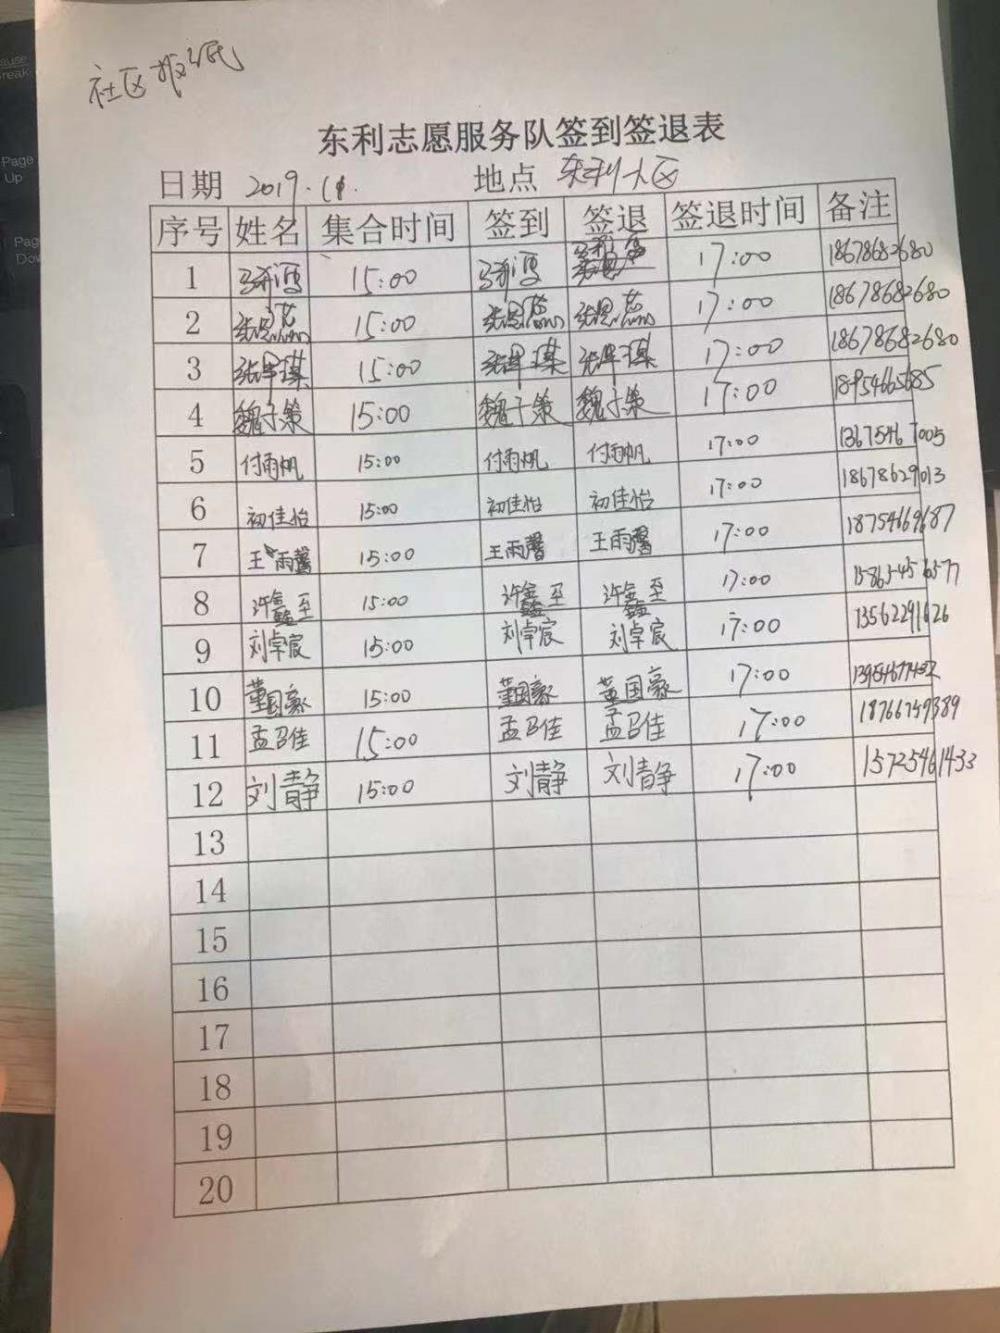 社区
东利志愿服务队签到签退表
日期 2019. 地点 东利小区
序号 姓名 集合时间 签到 签退 签退时间 备注
1 15:00 17:00 18678682680
2 张恩蕊 15:00 张恩蕊 张恩蕊 17:00 18678682680
3 15:00 17:00 18678682680
4 魏子策 15:00 魏子策 魏子策 17:00 18954665685
5 付雨帆 15:00 付雨帆 付雨帆 17:00 13675467005
6 初佳怡 15:00 初佳怡 初佳怡 17:00 18678629013
7 王雨馨 15:00 王雨馨 王雨馨 17:00 18754669687
8 许鑫至 15:00 许鑫至 许鑫至 17:00 15865456577
9 刘卓宸 15:00 刘卓宸 刘卓宸 17:00 13562291626
10 董国豪 15:00 董国豪 董国豪 17:00
11 孟召佳 15:00 孟召佳 孟召佳 17:00 18766749389
12 刘静 15:00 刘静 刘静 17:00 15725461433
13
14
15
16
17
18
19
20
Page
Up